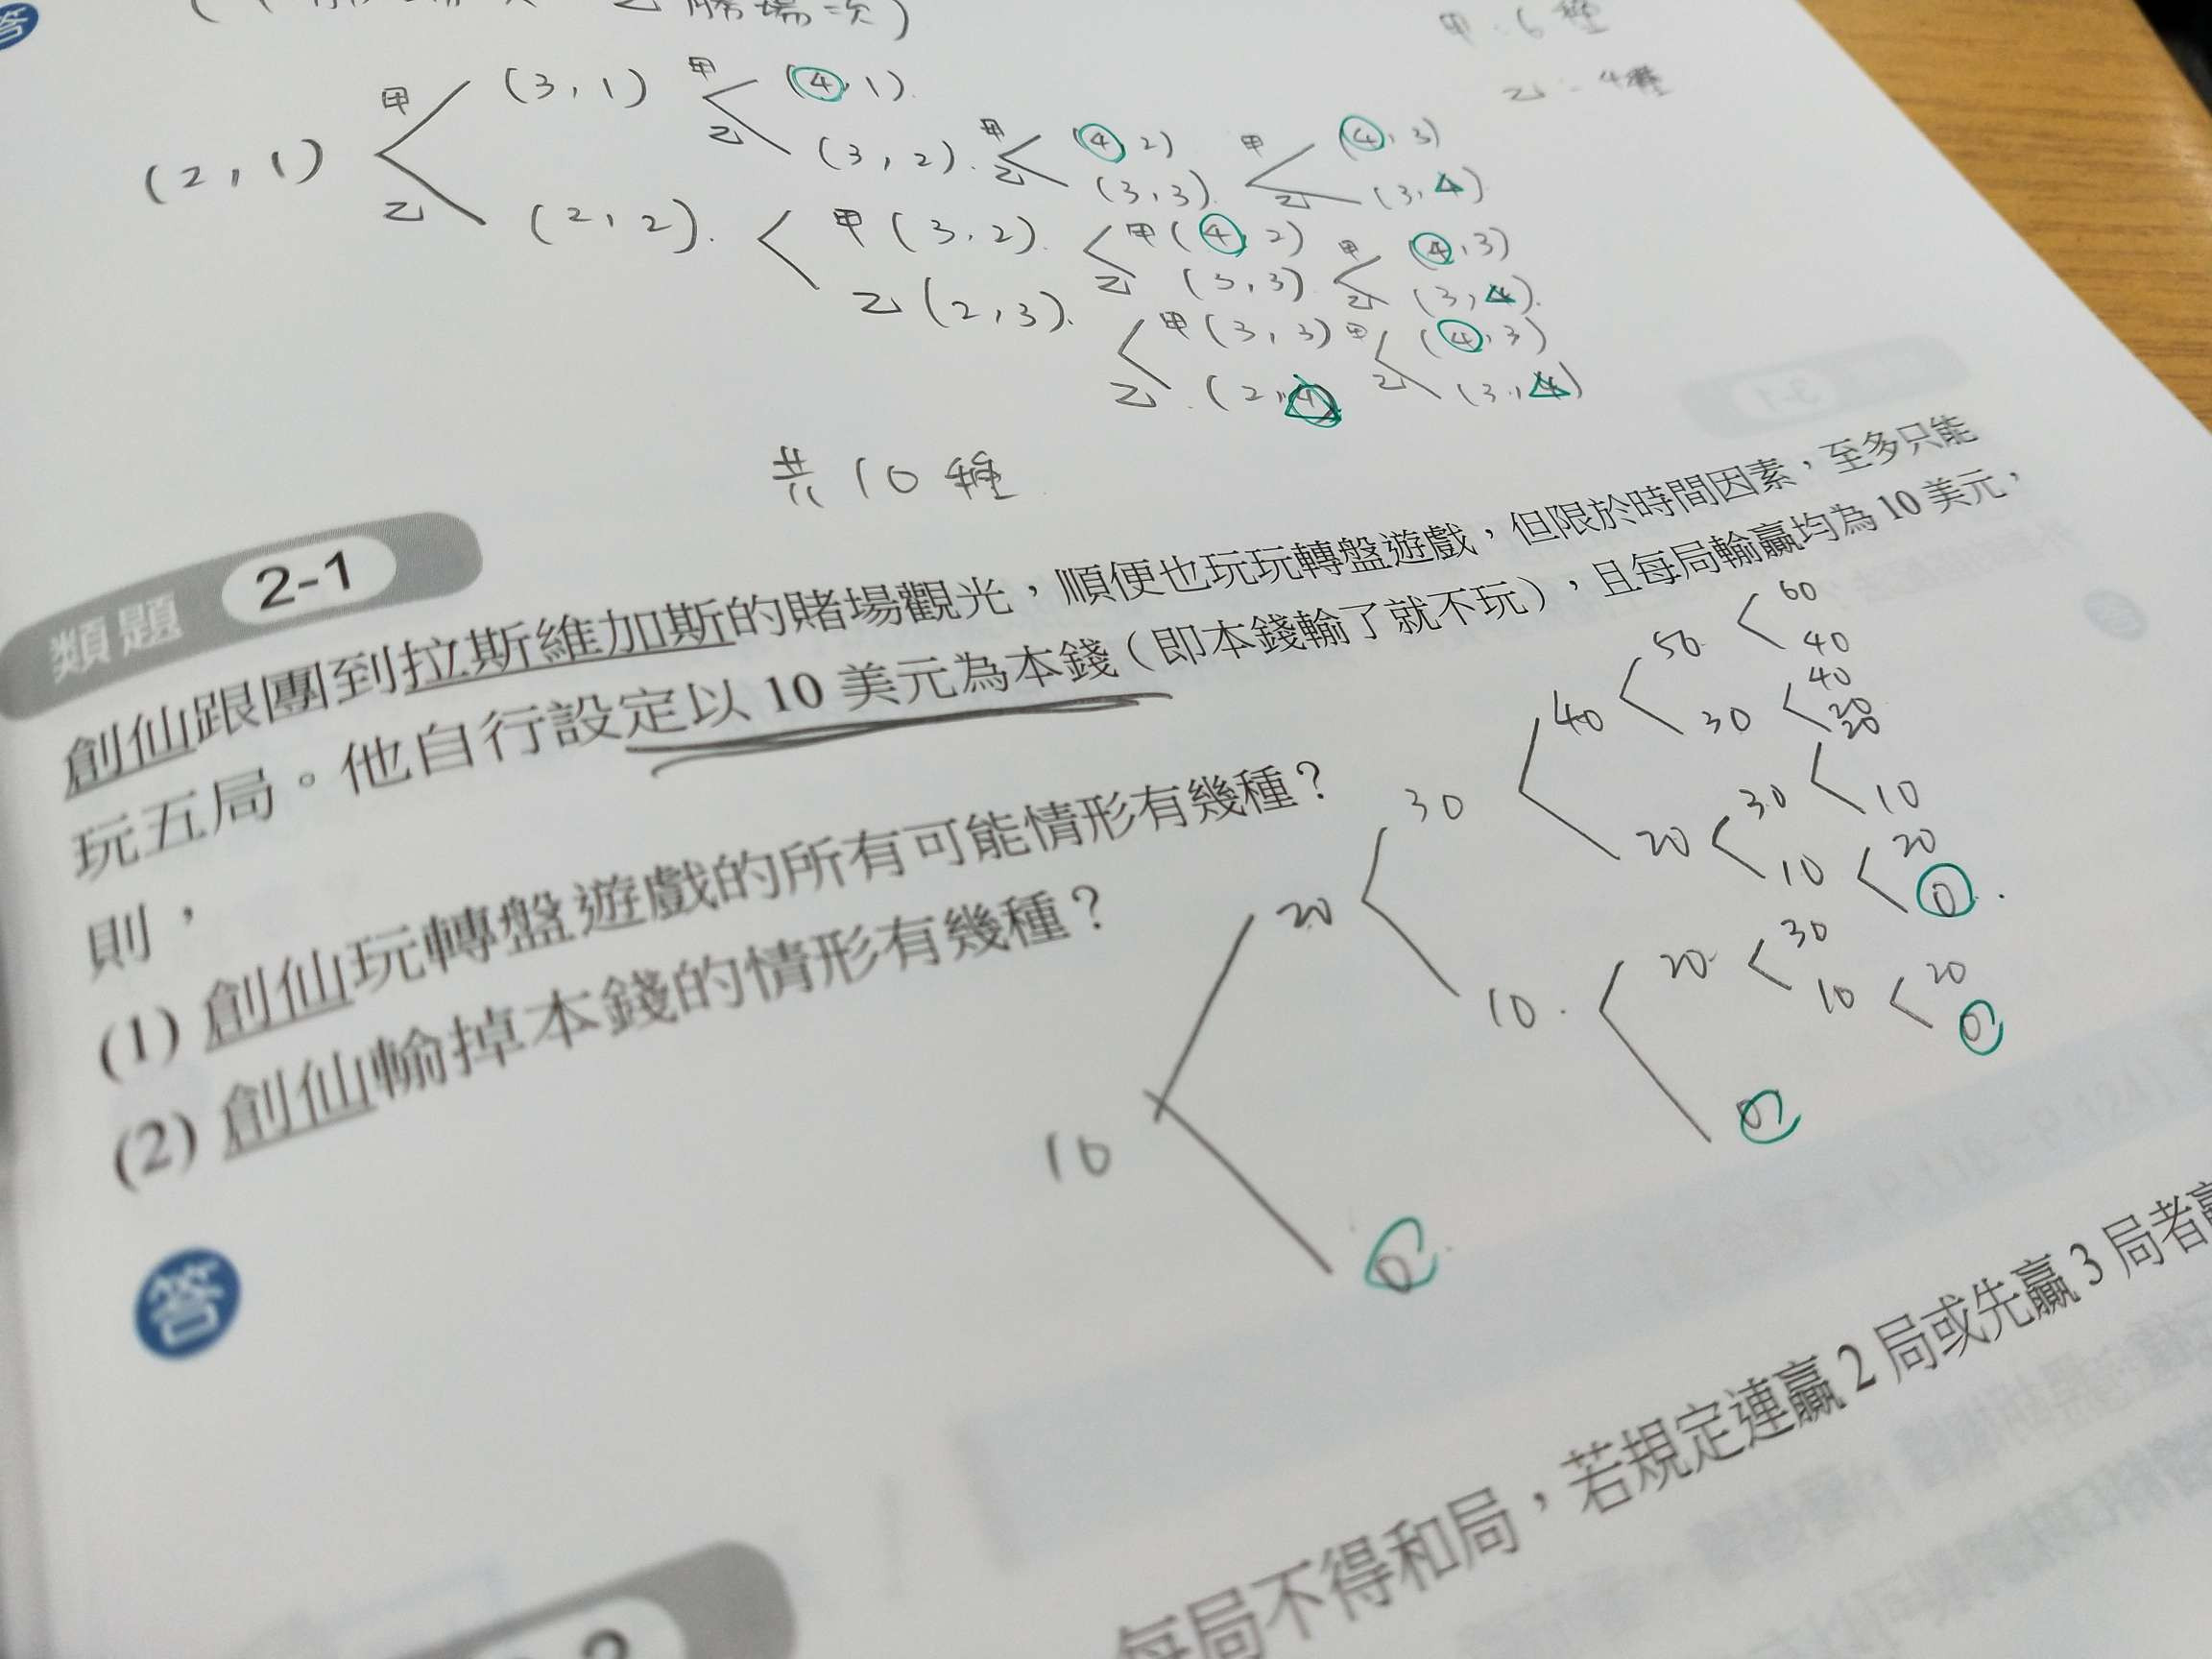 答
勝場次)
甲：6種
乙：4種
(2,1)
甲 (3,1) 甲 (4,1)
乙 (3,2) 甲 (4,2) 甲 (4,3)
乙 (3,3) 乙 (3,4)
乙 (2,2) 甲 (3,2) 甲 (4,2) 甲 (4,3)
乙 (3,3) 乙 (3,4)
乙 (2,3) 甲 (3,3) 甲 (4,3)
乙 (2,4) 乙 (3,4)
共10種
類題 2-1
創仙跟團到拉斯維加斯的賭場觀光，順便也玩玩轉盤遊戲，但限於時間因素，至多只能
玩五局。他自行設定以 10 美元為本錢（即本錢輸了就不玩），且每局輸贏均為 10 美元，
則，
(1) 創仙玩轉盤遊戲的所有可能情形有幾種？
(2) 創仙輸掉本錢的情形有幾種？
10
20
0
30
10
40
20
20
0
50
30
30
10
30
10
60
40
40
20
20
10
20
0
20
0
答
每局不得和局，若規定連贏 2 局或先贏 3 局者